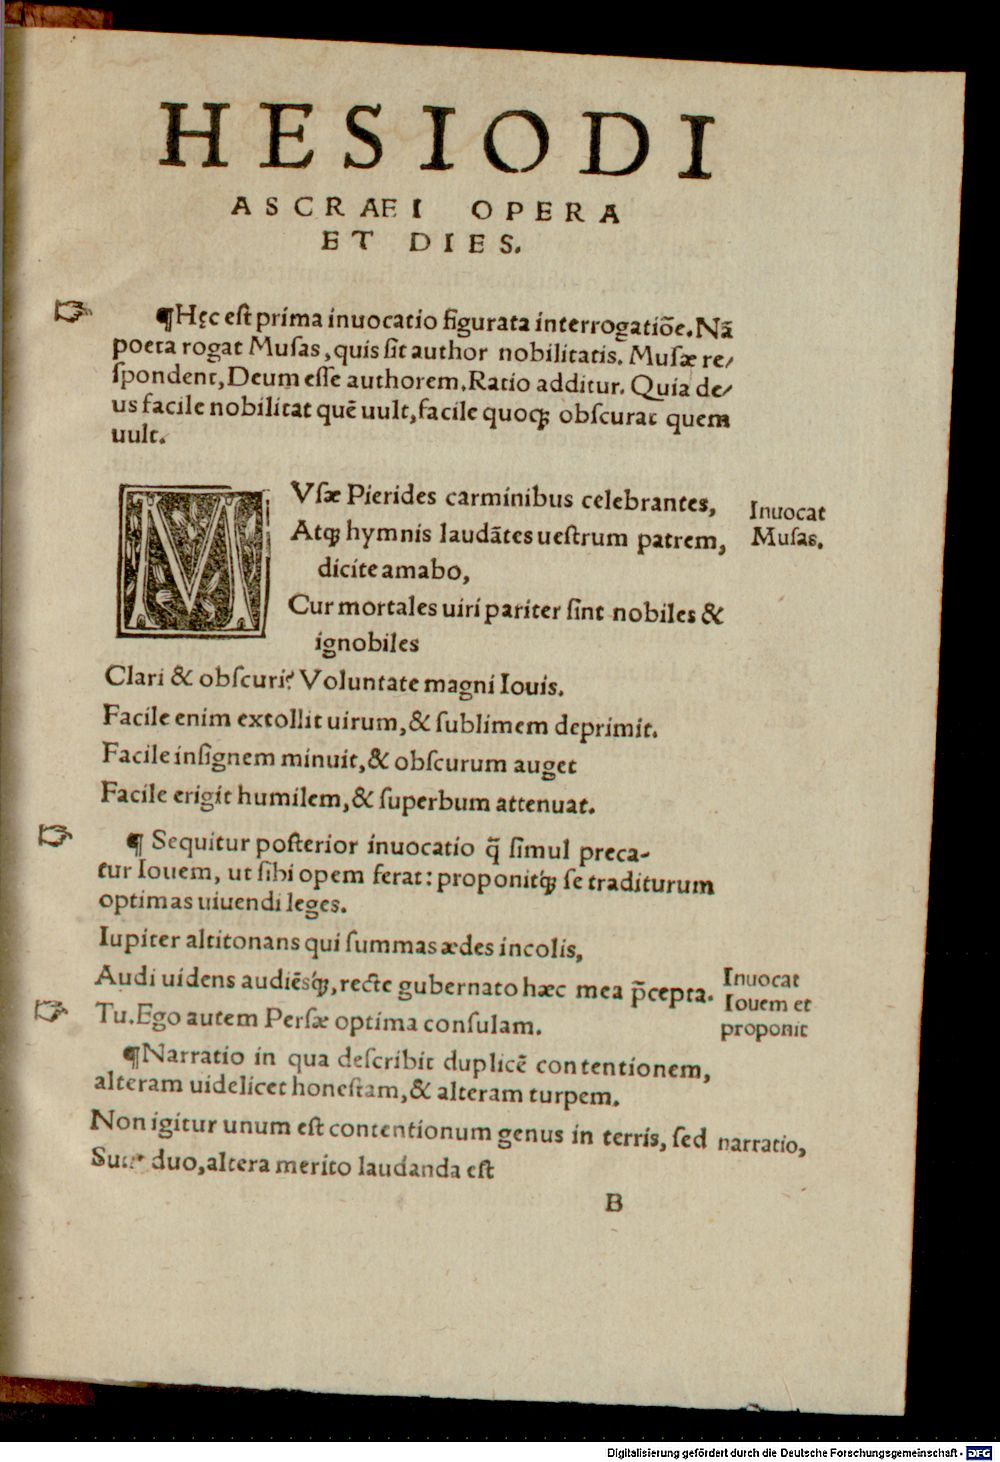 HESIODI
ASCRAEI OPERA
ET DIES.
☞ ¶Hęc est prima inuocatio figurata interrogatiõe. Nã
poeta rogat Musas, quis sit author nobilitatis. Musæ re/
spondent, Deum esse authorem. Ratio additur. Quia de/
us facile nobilitat quẽ uult, facile quoq; obscurat quem
uult.
MVsæ Pierides carminibus celebrantes,
Atq; hymnis laudãtes uestrum patrem,
dicite amabo,
Inuocat
Musas.
Cur mortales uiri pariter sint nobiles &
ignobiles
Clari & obscuri? Voluntate magni Iouis.
Facile enim extollit uirum, & sublimem deprimit.
Facile insignem minuit, & obscurum auget
Facile erigit humilem, & superbum attenuat.
☞ ¶ Sequitur posterior inuocatio q̃ simul preca-
tur Iouem, ut sibi opem ferat: proponitq́; se traditurum
optimas uiuendi leges.
Iupiter altitonans qui summas ædes incolis,
Audi uidens audiẽsq́;, recte gubernato hæc mea p̃cepta.
☞ Tu. Ego autem Persæ optima consulam.
Inuocat
Iouem et
proponit
¶Narratio in qua describit duplicẽ contentionem,
alteram uidelicet honestam, & alteram turpem.
Non igitur unum est contentionum genus in terris, sed narratio,
duo, altera merito laudanda est
B
Digitalisierung gefördert durch die Deutsche Forschungsgemeinschaft - DFG